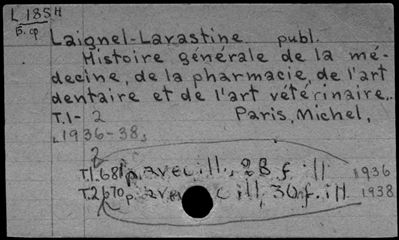 L 185H
Б. ф
Laignel-Lavastine publ.
Histoire générale de la mé-
decine, de la pharmacie, de l'art
dentaire et de l'art vétérinaire.
T.1- 2 Paris, Michel,
1936-38,
2
T.1.681p. avec ill., 28 f. ill 1936
T.2,670 p. avec ill, 30 f. ill 1938